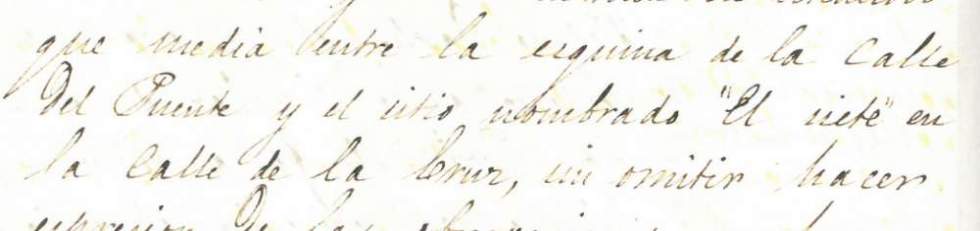 que media entre la esquina de la Calle
Del Puente y el sitio nombrado "El siete" en
la Calle de la Cruz, sin omitir hacer
expresion de las